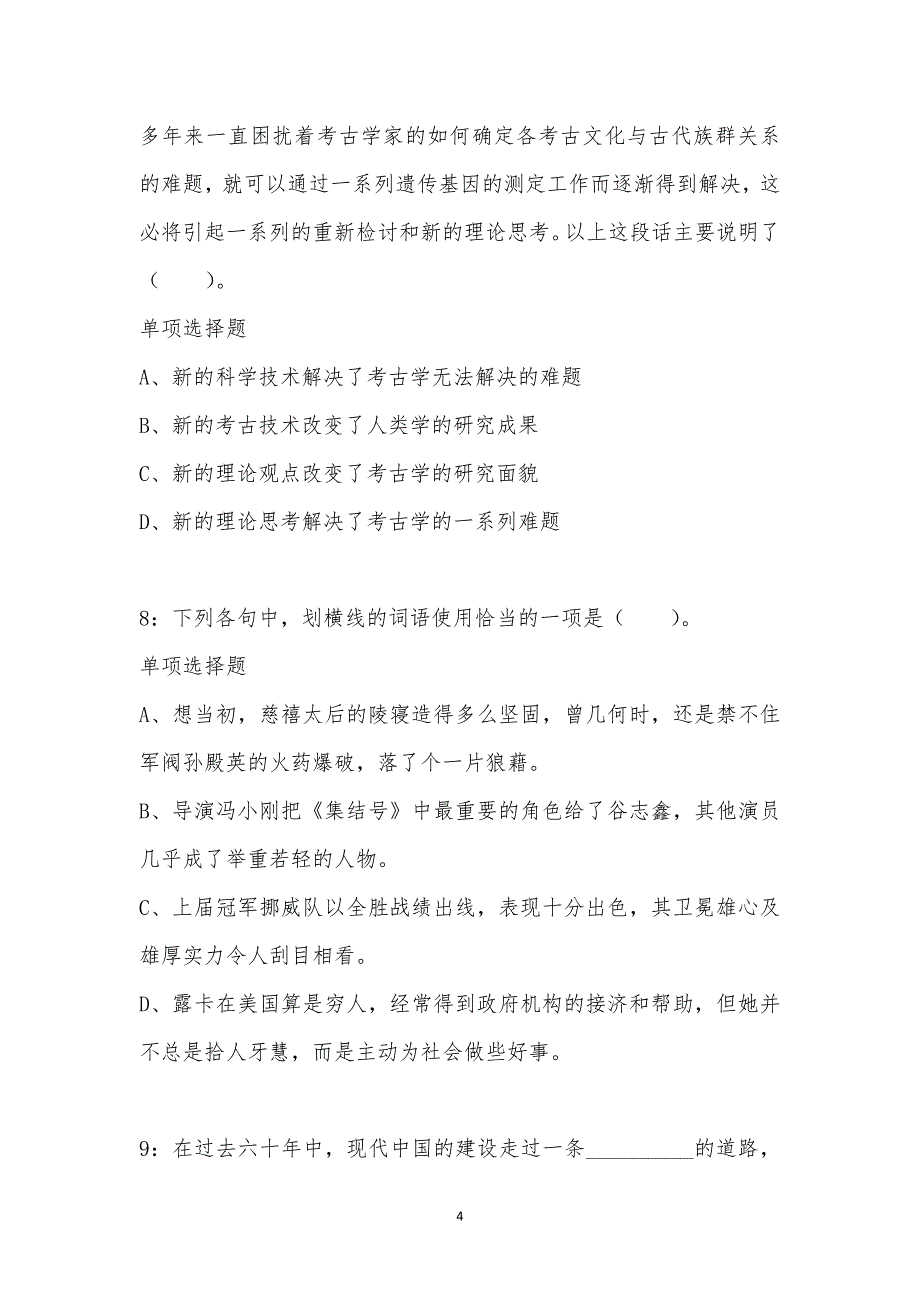 多年来一直困扰着考古学家的如何确定各考古文化与古代族群关系
的难题，就可以通过一系列遗传基因的测定工作而逐渐得到解决，这
必将引起一系列的重新检讨和新的理论思考。以上这段话主要说明了
（　　）。
单项选择题
A、新的科学技术解决了考古学无法解决的难题
B、新的考古技术改变了人类学的研究成果
C、新的理论观点改变了考古学的研究面貌
D、新的理论思考解决了考古学的一系列难题
8：下列各句中，划横线的词语使用恰当的一项是（　　）。
单项选择题
A、想当初，慈禧太后的陵寝造得多么坚固，曾几何时，还是禁不住
军阀孙殿英的火药爆破，落了个一片狼藉。
B、导演冯小刚把《集结号》中最重要的角色给了谷志鑫，其他演员
几乎成了举重若轻的人物。
C、上届冠军挪威队以全胜战绩出线，表现十分出色，其卫冕雄心及
雄厚实力令人刮目相看。
D、露卡在美国算是穷人，经常得到政府机构的接济和帮助，但她并
不总是拾人牙慧，而是主动为社会做些好事。
9：在过去六十年中，现代中国的建设走过一条__________的道路，
4